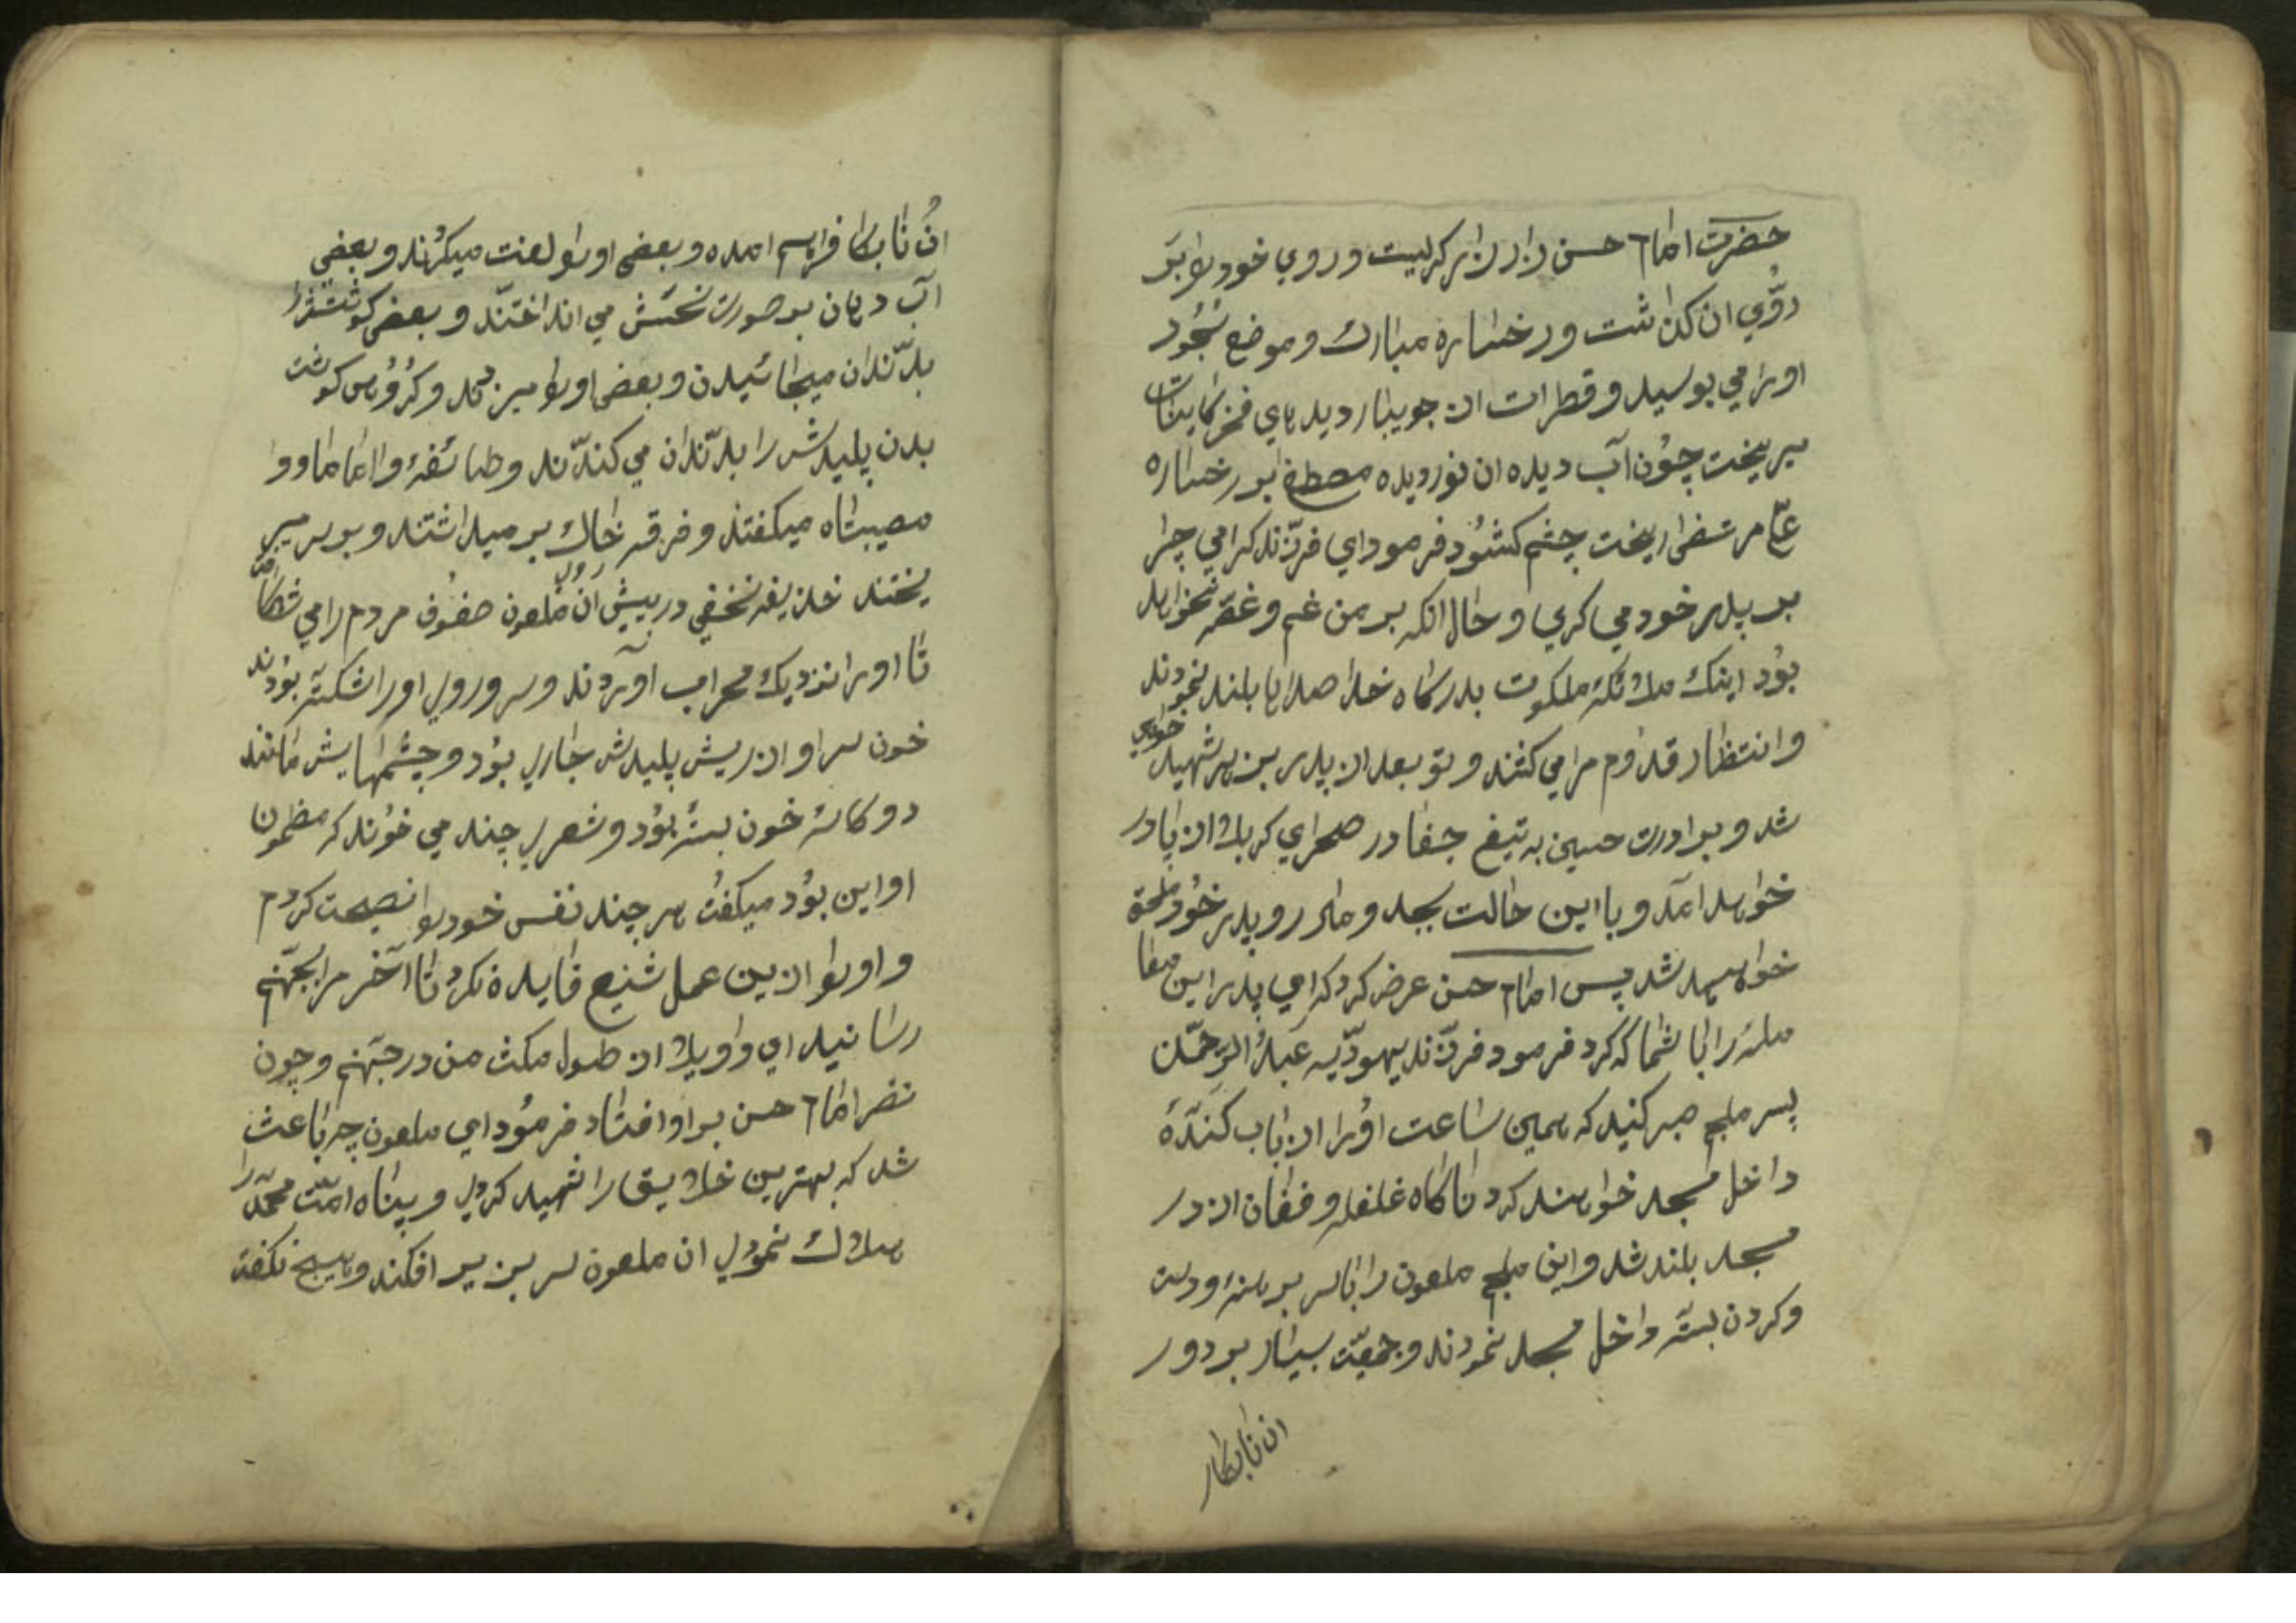 حضرت امام حسن زار زار کریست و روي خود را بر
روُي ان کذاشت و رخساره مبارك و موضع سُجُود
اورا مي بوسيد و قطرات از جويبار ديدهاي فخر کاينات
ميريخت چوُن آب ديده ان نور ديده مصطفي بر رخساره
علّي مرتضي ريخت چشم کشوُد فرمود اي فرزند کرامي چرا
بر پدر خود مي کري و حال انکه بر من غم و غصّه نخواهد
بوُد اينك ملائکه ملکوت بدرکاه خدا صداها بلند نمودند
و انتظار قدوُم مرا مي کشند و تو بعد از پدر بزهر شهيد خواهي
شد و برادرت حسين به تيغ جفا در صحراي کربلا از پا در
خواهد امد و با اين حالت بجد و مادر و پدر خوُد ملحق
خواهيد شد پس امام حسن عرض کرد که اي پدر اين معا
مله را با شما که کرد فرمود فرزند يهوديّه عبدُ الرّحمٰن
پسر ملجم صبر کنيد که همين ساعت اوُرا از باب کنده
داخل مسجد خواهند کرد ناکاه غلغله و فغان از در
مسجد بلند شد و ابن ملجم ملعون را با سر برهنه و دست
و کردن بسته داخل مسجد نمودند و جمعيّت بسيار بر دور
ان نابکار
انُ نابکار فراهم امده و بعضي اورا لعنت ميکردند و بعضي
آب دهان بر صورت نحسش مي انداختند و بعضي کوشتشرا
بدندان ميخائيدن و بعضي اورا ميزدند و کرُوُهي کوشت
بدن پليدش را بدندان مي کندند و طائفهٔ وا اماما و وا
مصيبتاه ميکفتند و فرقه خاك بر ميداشتند و بر سر مير
يختند خذيفه نخفي در پيش روي ان ملعون صفوُف مردم را مي شکافت
تا اورا نزديك محراب آوردند و سر و روي اورا شکسته بودند
خون سر او از ريش پليدش جاري بوُد و چشمهايش مانند
دو کاسهٔ خون بسته بوُد و شعري چند مي خوُند که مظمون
او اين بوُد ميکفت هر چند نفس خود را نصيحت کردم
و اورا ازين عمل شنيع فايده نکرد تا آخر مرا بجهّنم
رسانيد اي واويلا از طول مکث من در جهّنم و چون
نضر امام حسن بر او افتاد فرموُد اي ملعون چه باعث
شد که بهترين خلايق را شهيد کردي و پناه امّت محمّد را
هلاك نموُدي ان ملعون سر بزير افکند و هيچ نکفت